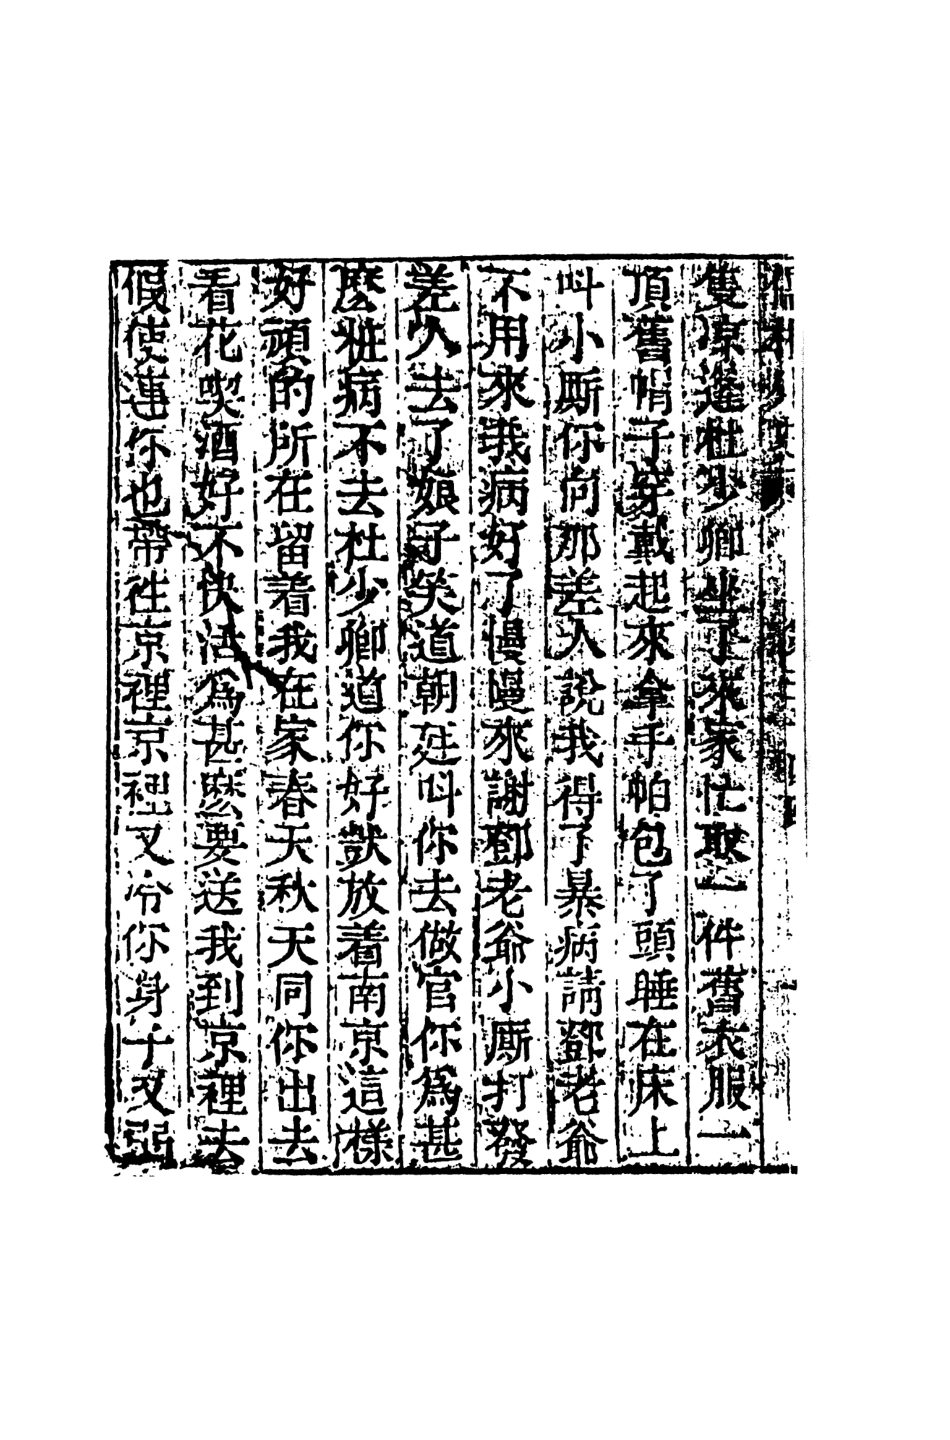 隻凉篷杜少卿坐了來家忙取一件舊衣服一
頂舊帽子穿戴起來拿手帕包了頭睡在床上
叫小厮你向那差人說我得了暴病請鄧老爺
不用來我病好了慢慢來謝鄧老爺小厮打發
差人去了娘子笑道朝廷叫你去做官你爲甚
麽粧病不去杜少卿道你好獃放着南京這樣
好頑的所在留着我在家春天秋天同你出去
看花喫酒好不快活爲甚麽要送我到京裡去
假使連你也帶往京裡京裡又冷你身子又弱